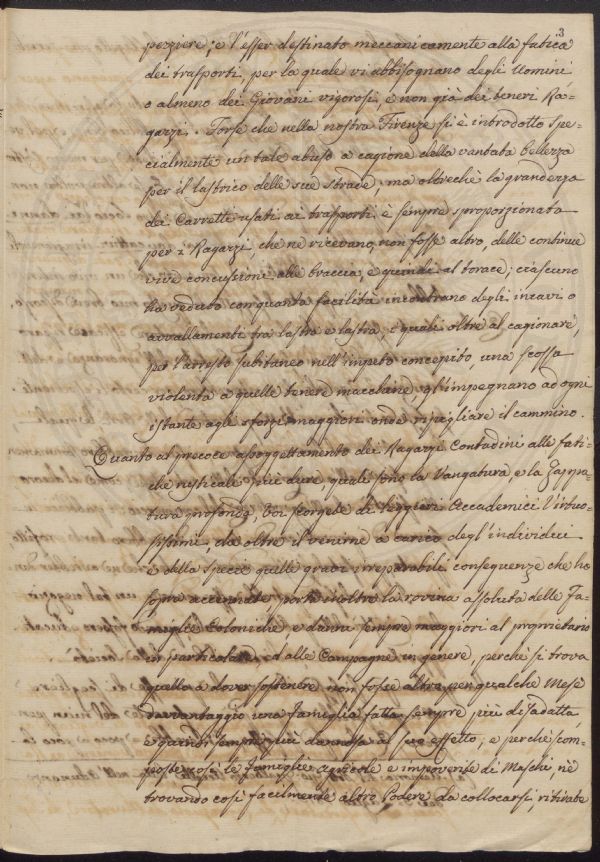 3
pezziere; e l'esser destinato meccanicamente alla fatica
dei trasporti, per la quale vi abbisognano degli Uomini
o almeno dei Giovani vigorosi, e non già dei teneri Ra-
gazzi. Forse che nella nostra Firenze si è introdotto spe-
cialmente un tale abuso a cagione della vantata bellezza
per il lastrico delle sue strade; ma oltrechè la grandezza
dei Carretti usati ai trasporti è sempre sproporzionata
per i Ragazzi, che ne ricevano, non fosse altro, delle continue
vive concussioni alle braccia, e quindi al torace; ciascuno
ha veduto con quanta facilità incontrano degli incavi o
avvallamenti tra lastra e lastra, i quali oltre al cagionare,
per l'arresto subitaneo nell'impeto concepito, una scossa
violenta a quelle tenere macchine, gl'impegnano ad ogni
istante agli sforzi maggiori onde ripigliare il cammino.
Quanto al precoce assoggettamento dei Ragazzi Contadini alle fati-
che rusticali più dure, quali sono la Vangatura, e la Zappa-
tura profonda, Voi scorgete di leggieri Accademici Virtuo-
sissimi, che oltre il venirne a carico degl'individui
e della specie quelle gravi irreparabili conseguenze che ho
sopra accennate, porti inoltre la rovina assoluta delle Fa-
miglie Coloniche, e danni sempre maggiori al proprietario
in particolare, ed alle Campagne in genere, perchè si trova
quello a dover sostenere non fosse altro per qualche Mese
davvantaggio una famiglia fatta sempre più disadatta,
e quindi sempre più dannosa al suo effetto, e perchè scom-
poste così le famiglie agricole e impoverite di Maschi, nè
trovando così facilmente altro Podere da collocarsi, ritirate